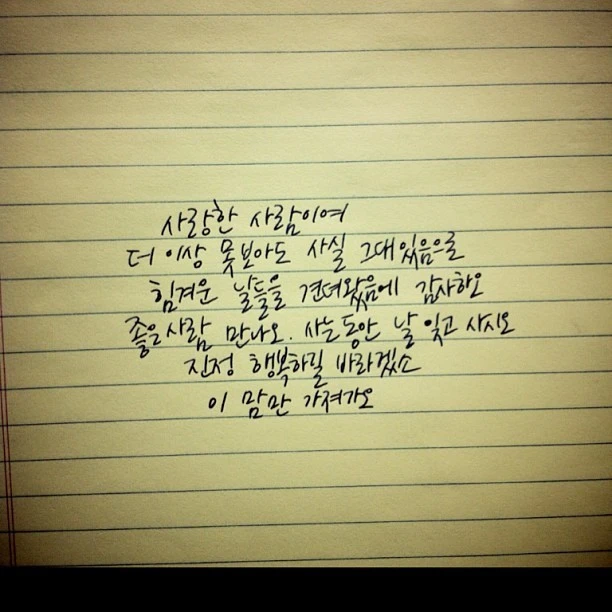 사랑한 사람이여
더 이상 못보아도 사실 그대있음으로
힘겨운 날들을 견뎌왔음에 감사하오
좋은사람 만나오. 사는동안 날 잊고 사시오
진정 행복하길 바라겠소
이 맘만 가져가오